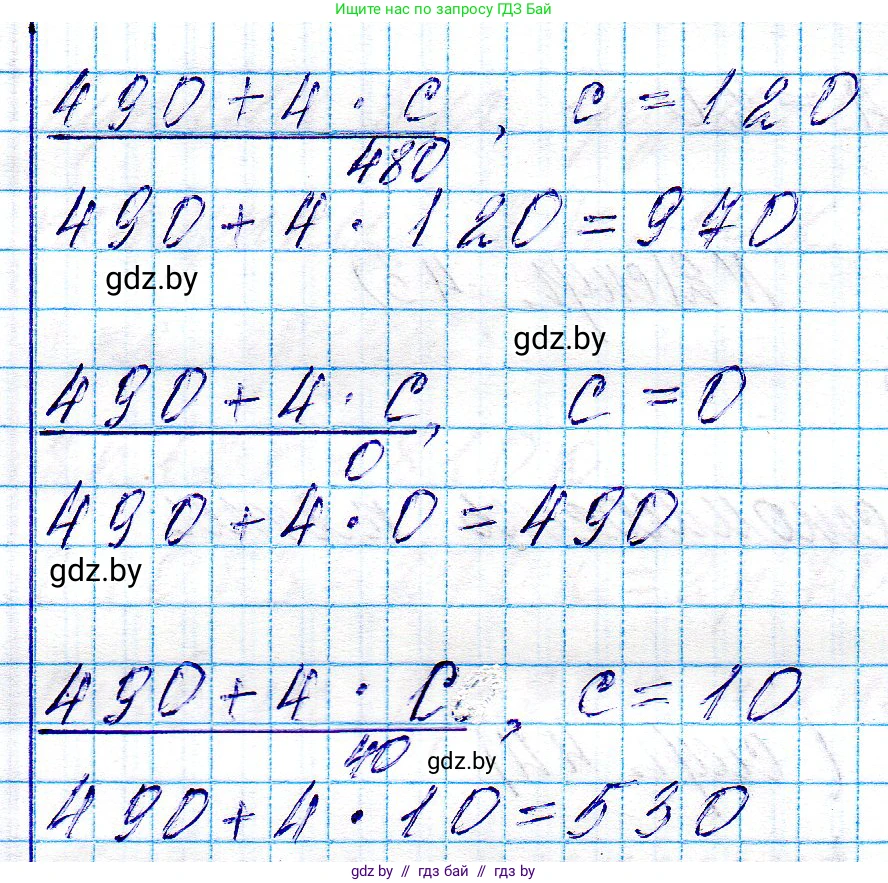 Ищите нас по запросу ГДЗ Бай
490 + 4 · c, c = 120
480
490 + 4 · 120 = 970
gdz.by
gdz.by
490 + 4 · c, c = 0
0
490 + 4 · 0 = 490
gdz.by
490 + 4 · c, c = 10
40
gdz.by
490 + 4 · 10 = 530
gdz.by // гдз бай // gdz by